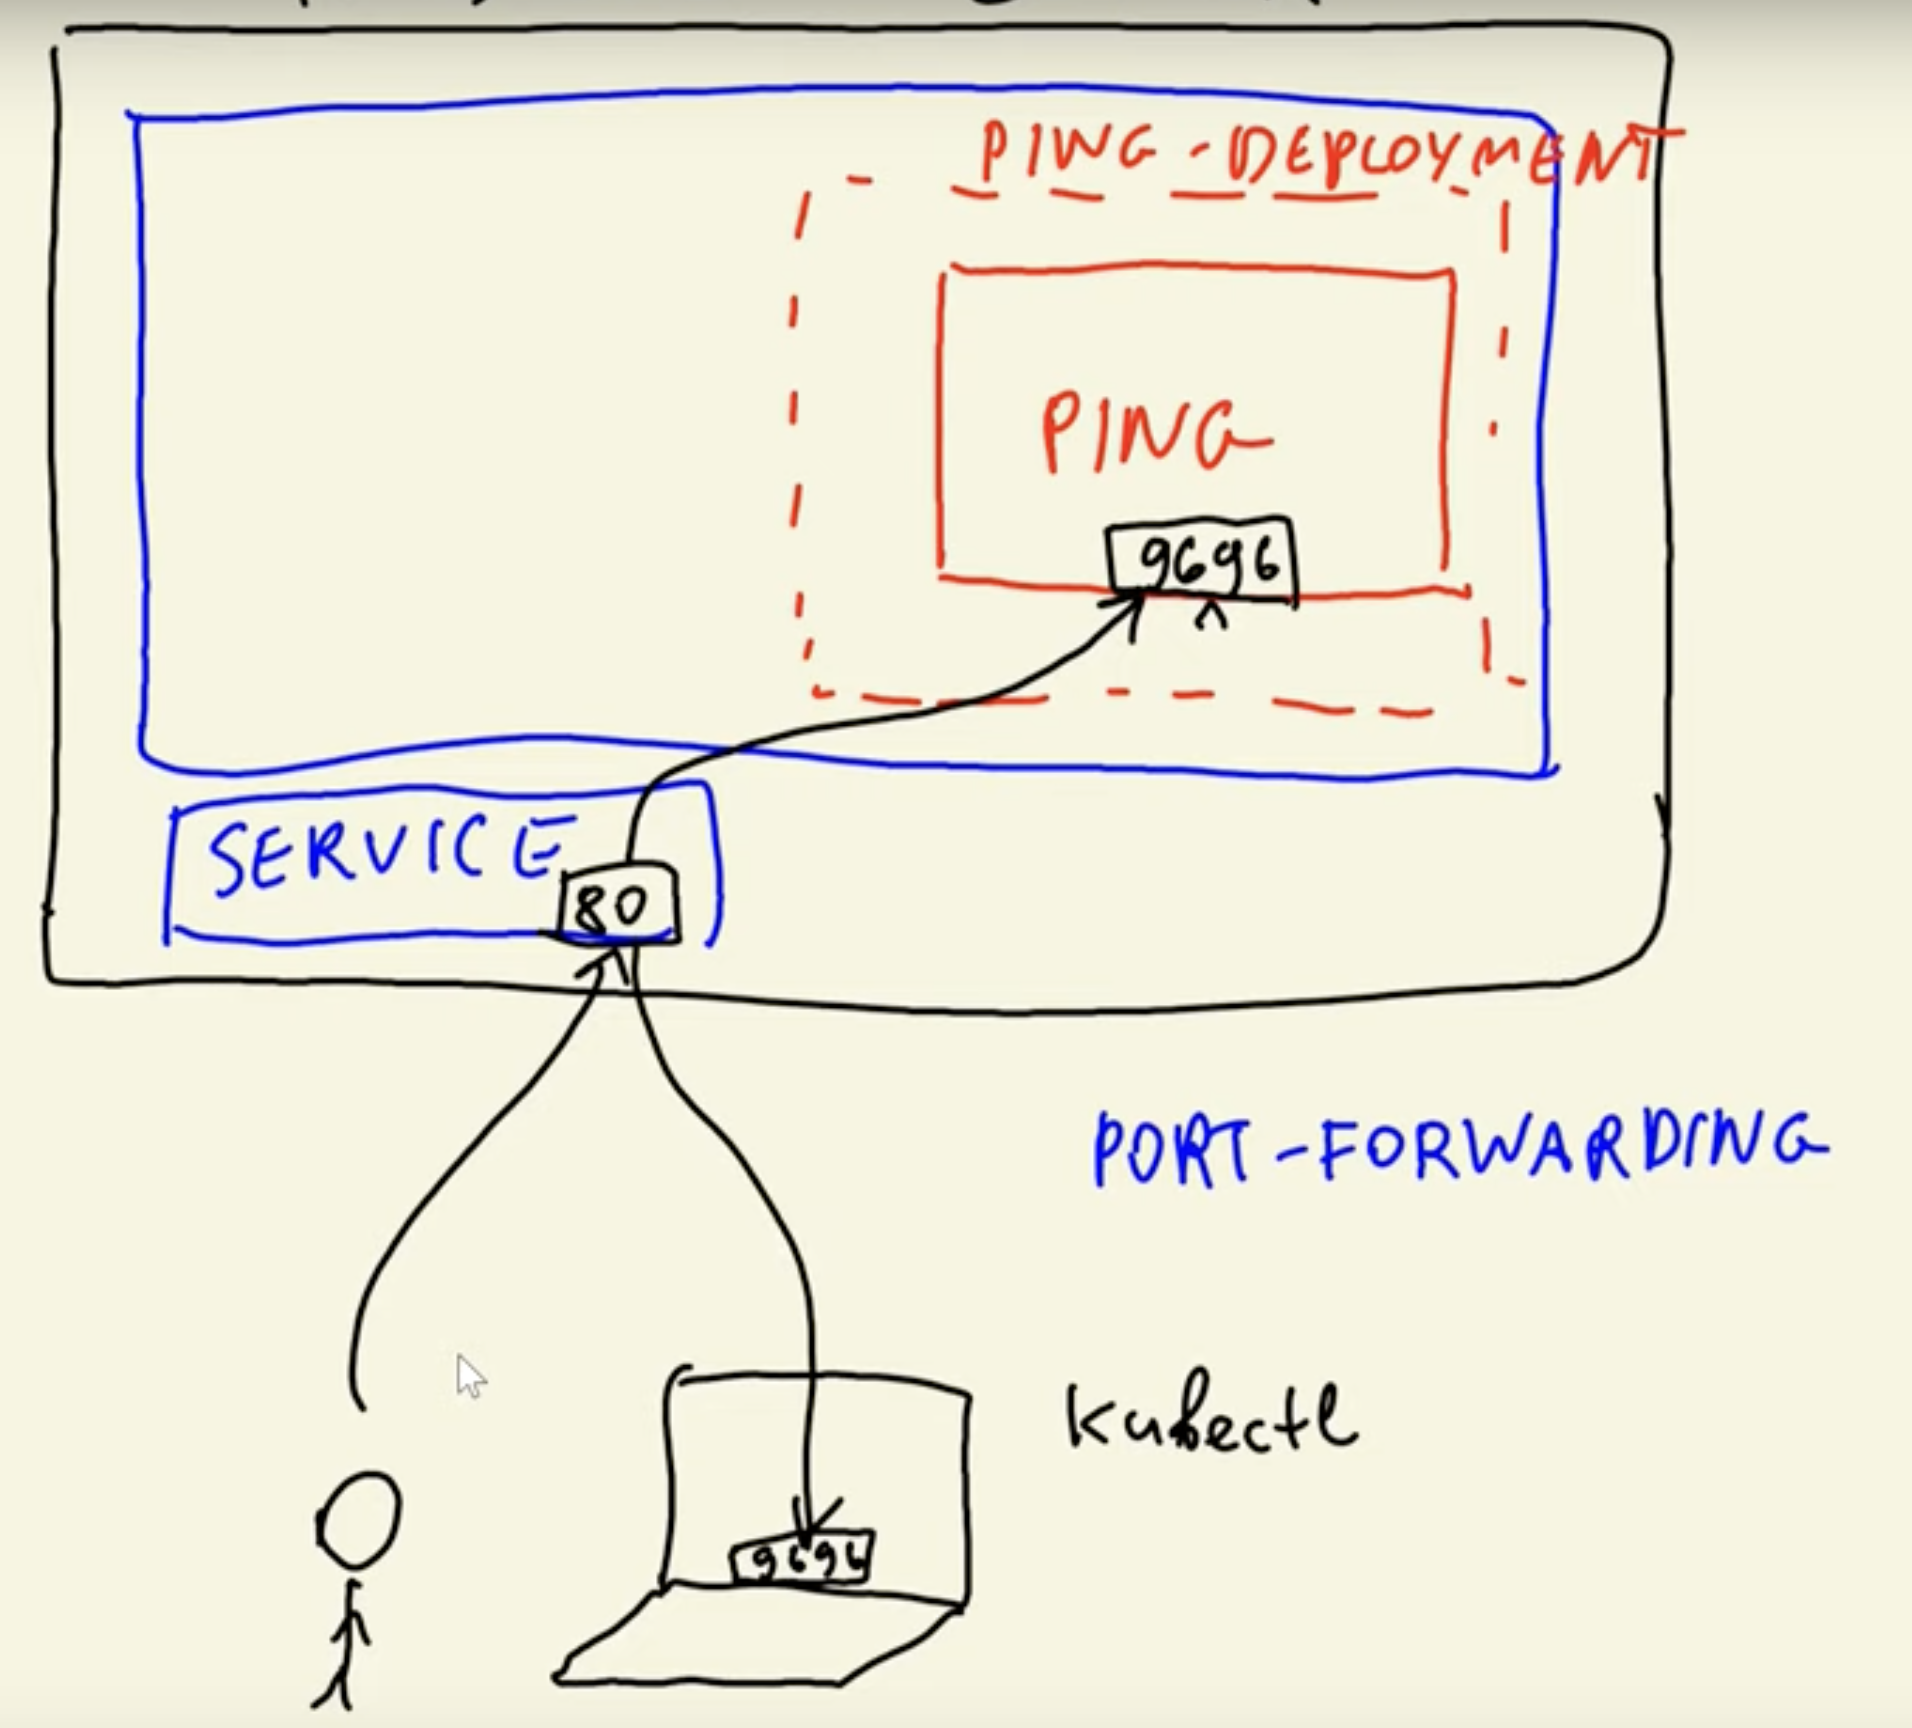 PING-DEPLOYMENT
PING
9696
SERVICE
80
PORT-FORWARDING
kubectl
9696